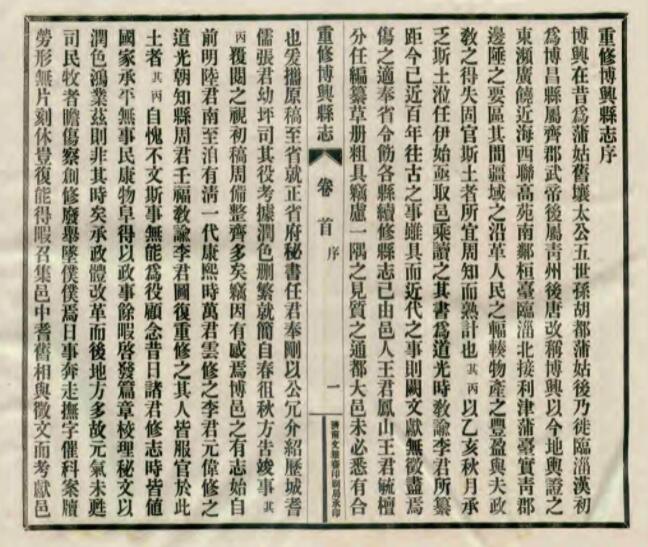 重修博興縣志序
博興在昔為蒲姑舊壤太公五世孫胡都蒲姑後乃徙臨淄漢初
為博昌縣屬齊郡武帝後屬青州後唐改稱博興以今地輿證之
東瀕廣饒近海西聯高苑南鄰桓臺臨淄北接利津蒲臺實青郡
邊陲之要區其間疆域之沿革人民之輻輳物產之豐盈與夫政
教之得失固官斯土者所宜周知而熟計也其丙以乙亥秋月承
乏斯土涖任伊始亟取邑乘讀之其書為道光時教諭李君所纂
距今已近百年往古之事雖具而近代之事則闕文獻無徵盡焉
傷之適奉省令飭各縣續修縣志已由邑人王君鳳山王君毓檀
分任編纂草册粗具竊慮一隅之見質之通都大邑未必悉有合
重修博興縣志
卷首
序
一
濟南文雅齋印刷局承印
也爰攜原稿至省就正省府秘書任君奉剛以公冗介紹歷城耆
儒張君幼坪司其役考據潤色刪繁就簡自春徂秋方告竣事其
丙覆閱之視初稿周備整齊多矣竊因有感焉博邑之有志始自
前明陸君南至洎有清一代康熙時萬君雲修之李君元偉修之
道光朝知縣周君壬福教諭李君圖復重修之其人皆服官於此
土者其丙自愧不文斯事無能為役顧念昔日諸君修志時皆值
國家承平無事民康物阜得以政事餘暇啓發篇章校理秘文以
潤色鴻業茲則非其時矣承政體改革而後地方多故元氣未甦
司民牧者瞻傷察創修廢舉墜僕僕焉日事奔走撫字催科案牘
勞形無片刻休豈復能得暇召集邑中耆舊相與徵文而考獻邑